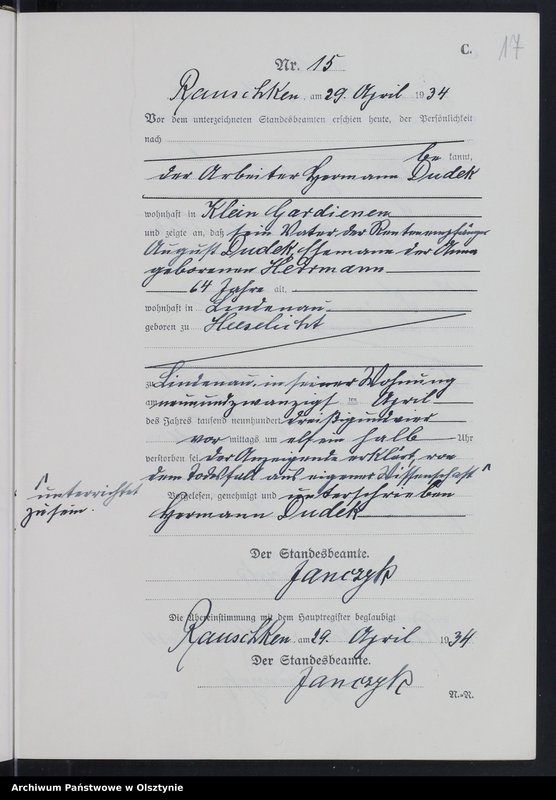 C. 17
Nr. 15
Rauschken, am 29. April 1934
Vor dem unterzeichneten Standesbeamten erschien heute, der Persönlichkeit
nach
bekannt,
der Arbeiter Hermann Dudek
wohnhaft in Klein Gardienen
und zeigte an, daß sein Vater, der Rentenempfänger
August Dudek, Ehemann der Anna
geborenen Herrmann
64 Jahre alt,
wohnhaft in Lindenau
geboren zu Heeselicht
zu Lindenau, in seiner Wohnung
am neunundzwanzigsten April
des Jahres tausend neunhundert dreißigundvier
vor mittags um elfein halb Uhr
verstorben sei. Der Anzeigende erklärt, von
dem Todesfall aus eigener Wissenschaft
unterrichtet
zu sein.
Vorgelesen, genehmigt und unterschrieben
Hermann Dudek
Der Standesbeamte.
Janczyk
Die Übereinstimmung mit dem Hauptregister beglaubigt
Rauschken, am 29. April 1934
Der Standesbeamte.
Janczyk
N.-R.
Archiwum Państwowe w Olsztynie